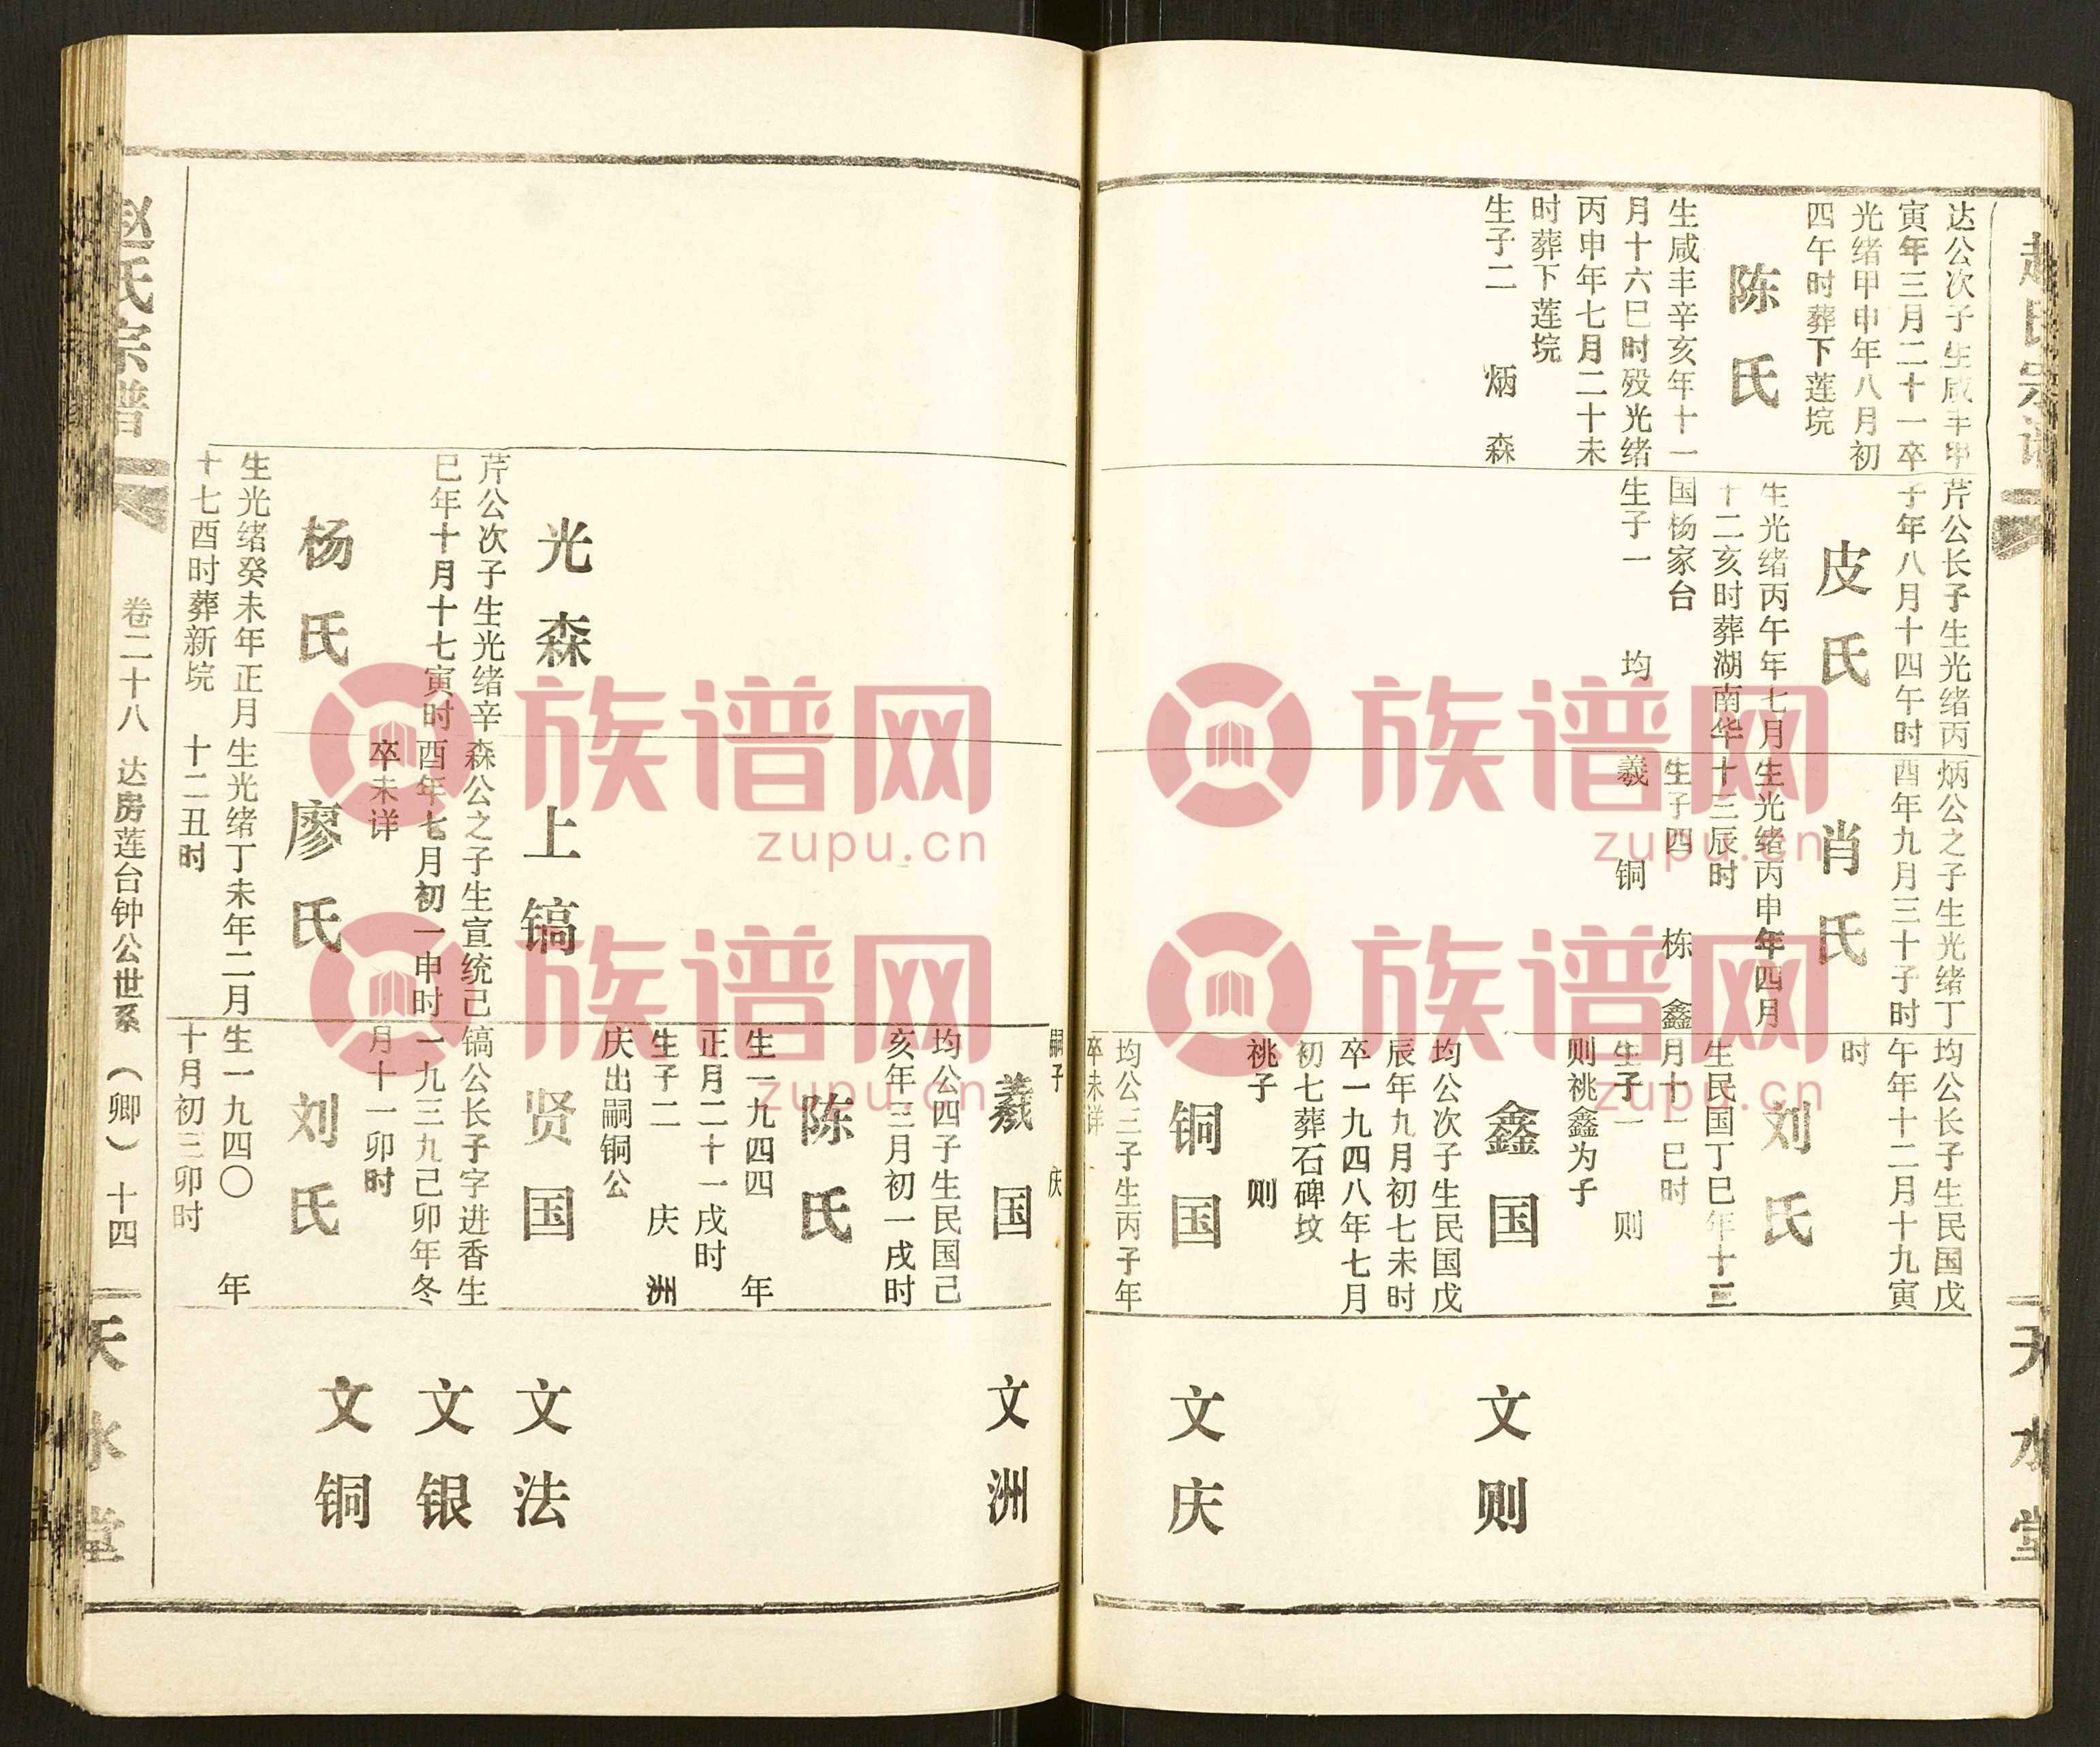 赵氏宗谱
天水堂
达公次子生咸丰甲
寅年三月二十一卒
光绪甲申年八月初
四午时葬下莲垸
陈氏
生咸丰辛亥年十一
月十六巳时殁光绪
丙申年七月二十未
时葬下莲垸
生子二 炳 森
芹公长子生光绪丙
子年八月十四午时
皮氏
生光绪丙午年七月
十二亥时葬湖南华
国杨家台
生子一 均
炳公之子生光绪丁
酉年九月三十子时
肖氏
生光绪丙申年四月
十三辰时
生子四 栋 鑫
羲 铜
均公长子生民国戊
午年十二月十九寅
时
刘氏
生民国丁巳年十三
月十一巳时
生子一 则
则祧鑫为子
鑫国
均公次子生民国戊
辰年九月初七未时
卒一九四八年七月
初七葬石碑坟
祧子 则
铜国
均公三子生丙子年
卒未详
文则
文庆
嗣子 庆
光森
芹公次子生光绪辛
巳年十月十七寅时
杨氏
生光绪癸未年正月
十七酉时葬新垸
上镐
森公之子生宣统己
酉年七月初一申时
卒未详
廖氏
生光绪丁未年二月
十二丑时
羲国
均公四子生民国己
亥年三月初一戌时
陈氏
生一九四四 年
正月二十一戌时
生子二 庆 洲
庆出嗣铜公
贤国
镐公长子字进香生
一九三九己卯年冬
月十一卯时
刘氏
生一九四〇 年
十月初三卯时
文洲
文法
文银
文铜
赵氏宗谱
卷二十八 达房莲台钟公世系(卿) 十四
天水堂
族谱网
zupu.cn
族谱网
zupu.cn
族谱网
zupu.cn
族谱网
zupu.cn